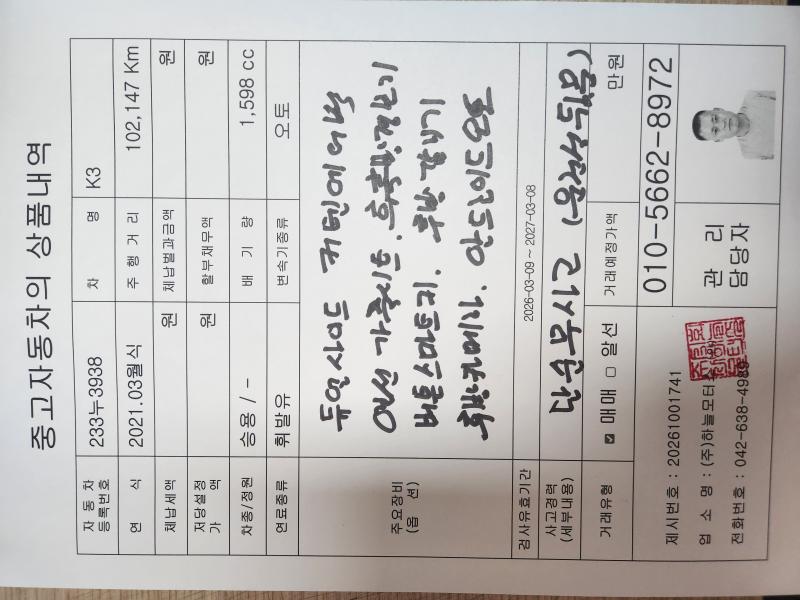 중고자동차의 상품내역
자동차등록번호 233누3938 차 명 K3
연 식 2021.03월식 주 행 거 리 102,147 Km
체납세액 원 체납벌과금액 원
저당설정가 액 원 할부채무액 원
차종/정원 승용 / - 배 기 량 1,598 cc
연료종류 휘발유 변속기종류 오토
주요장비(옵 션) 듀얼 사이드 커텐에어백
열선 가죽시트. 후측방경보기
버튼스마트키. 후방 감지기
후방카메라.
검사유효기간 2026-03-09 ~ 2027-03-08
사고경력(세부내용) 단순무사고
거래유형 매매 알선 거래예정가액 만원
제시번호 : 20261001741
업 소 명 : (주)하늘모터스
전화번호 : 042-638-49
관 리 담당자 010-5662-8972